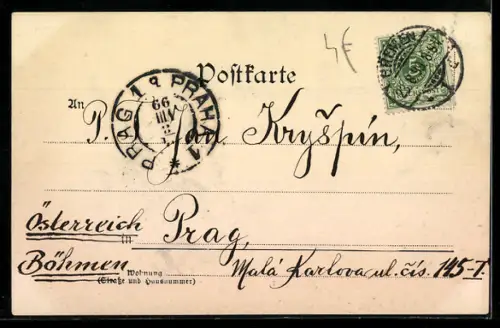 4€
Postkarte
BREMEN
5
PRAG 1 PRAHA 1
99
VIII
An P. T. Jan Kryšpín,
Österreich
in Prag,
Böhmen
Wohnung Malá Karlova ul. čís. 145-I.
(Straße und Hausnummer)